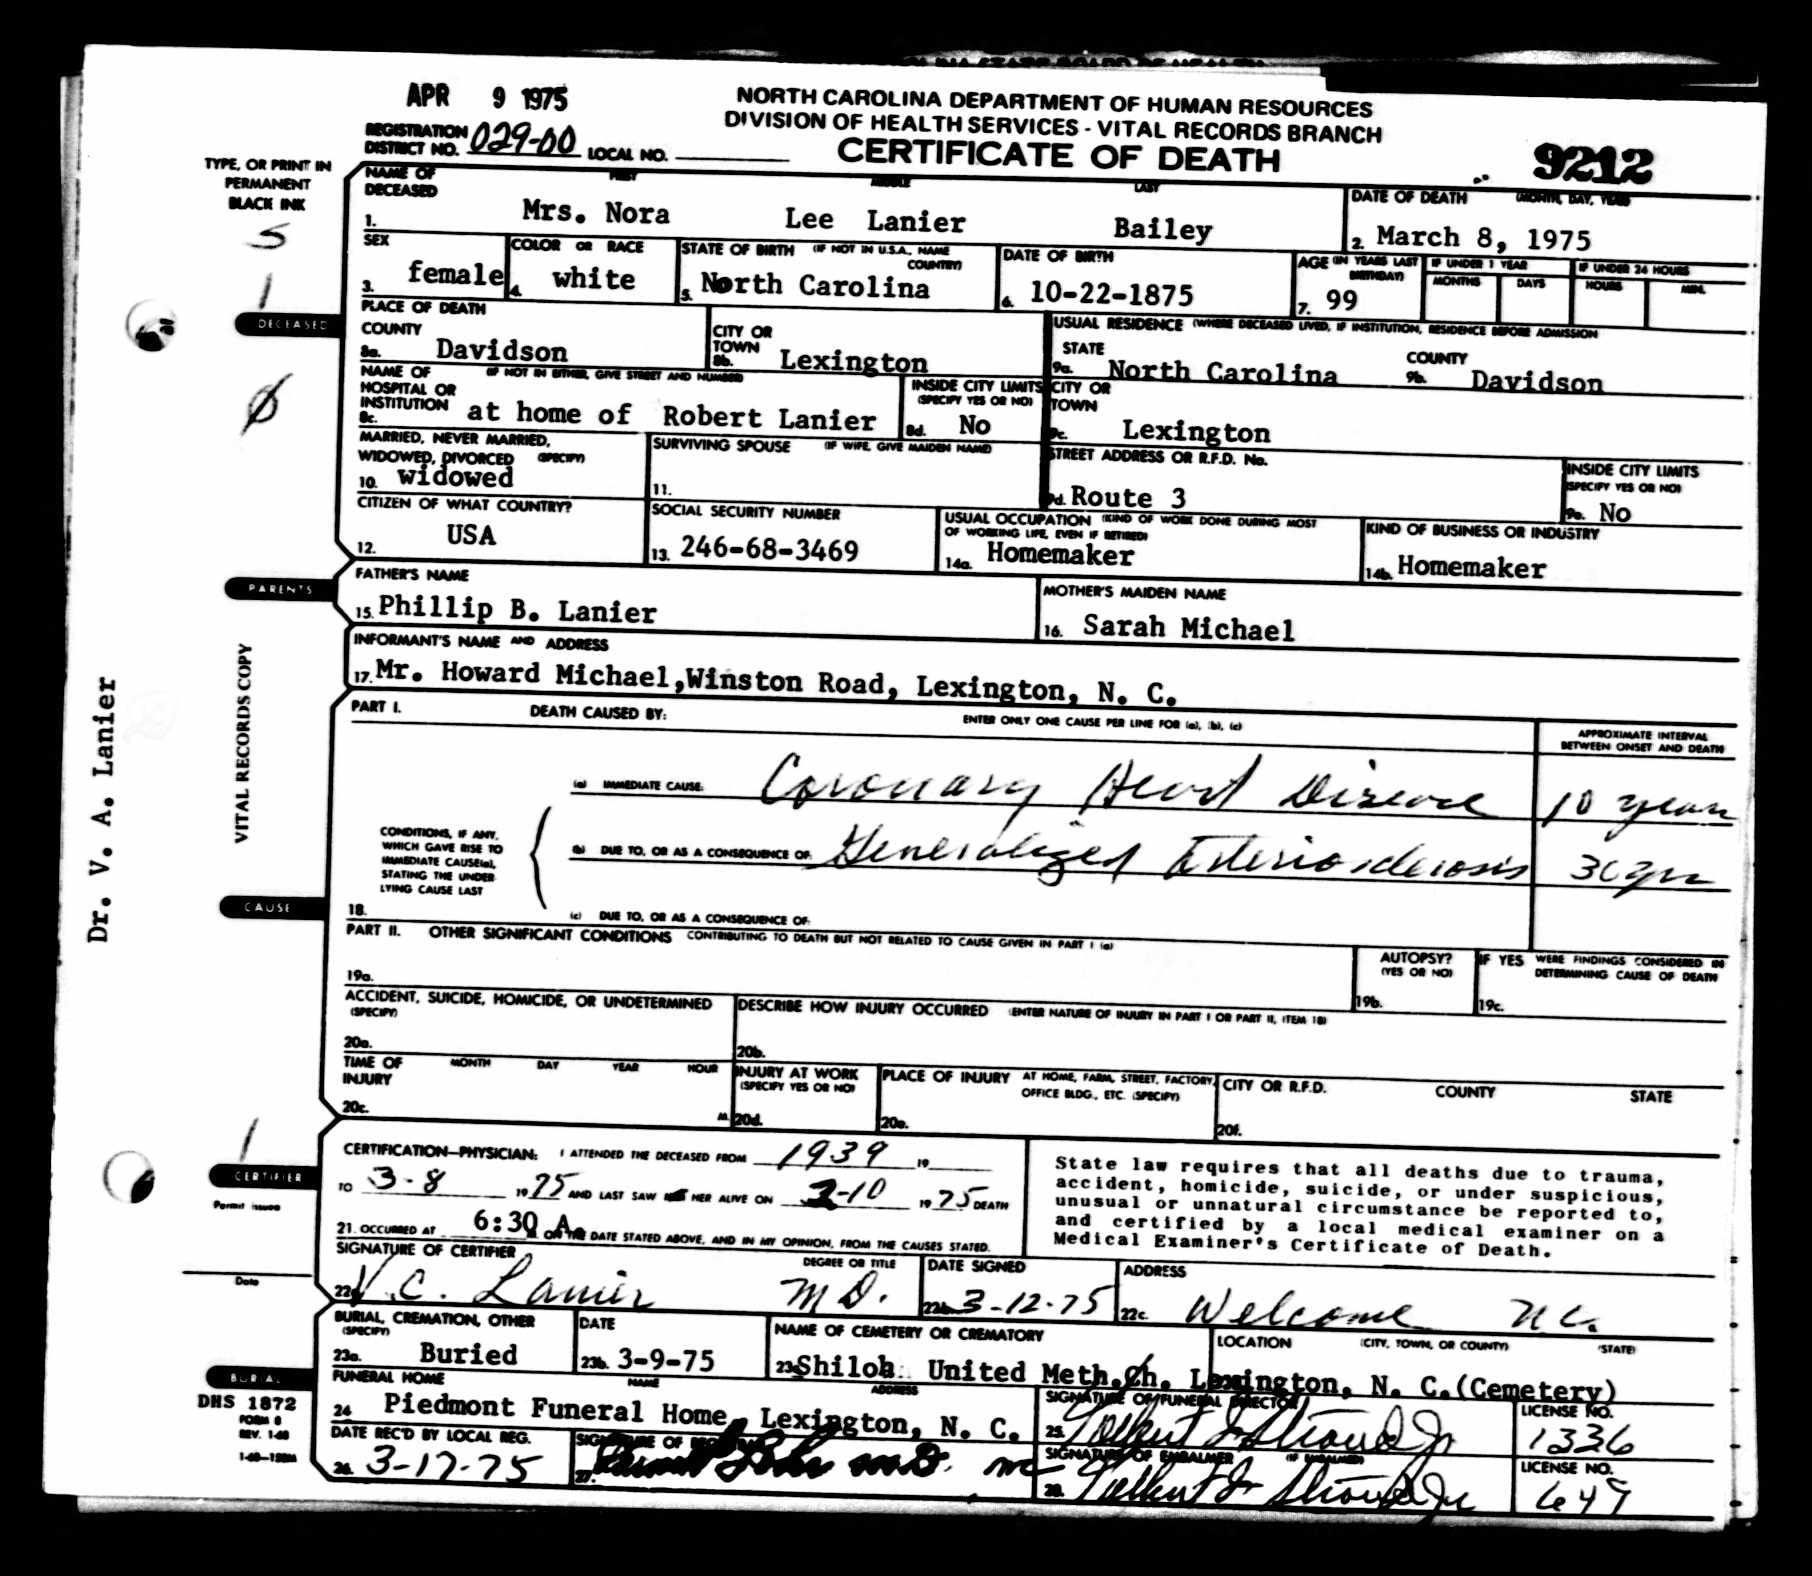 APR 9 1975
NORTH CAROLINA DEPARTMENT OF HUMAN RESOURCES
DIVISION OF HEALTH SERVICES - VITAL RECORDS BRANCH
CERTIFICATE OF DEATH
9212
REGISTRATION DISTRICT NO. 029-00 LOCAL NO.
TYPE, OR PRINT IN
PERMANENT
BLACK INK
5
1
DECEASED
NAME OF DECEASED FIRST MIDDLE LAST
1. Mrs. Nora Lee Lanier Bailey
DATE OF DEATH (MONTH, DAY, YEAR)
2. March 8, 1975
SEX
3. female
COLOR OR RACE
4. white
STATE OF BIRTH (IF NOT IN U.S.A., NAME COUNTRY)
5. North Carolina
DATE OF BIRTH
6. 10-22-1875
AGE (IN YEARS LAST BIRTHDAY)
7. 99
IF UNDER 1 YEAR
MONTHS DAYS
IF UNDER 24 HOURS
HOURS MIN.
PLACE OF DEATH
COUNTY
8a. Davidson
CITY OR TOWN
8b. Lexington
USUAL RESIDENCE (WHERE DECEASED LIVED, IF INSTITUTION, RESIDENCE BEFORE ADMISSION
STATE
9a. North Carolina
COUNTY
9b. Davidson
NAME OF HOSPITAL OR INSTITUTION (IF NOT IN EITHER, GIVE STREET AND NUMBER)
8c. at home of Robert Lanier
INSIDE CITY LIMITS
(SPECIFY YES OR NO)
8d. No
CITY OR TOWN
9c. Lexington
MARRIED, NEVER MARRIED,
WIDOWED, DIVORCED (SPECIFY)
10. widowed
SURVIVING SPOUSE (IF WIFE, GIVE MAIDEN NAME)
11.
STREET ADDRESS OR R.F.D. No.
9d. Route 3
INSIDE CITY LIMITS
(SPECIFY YES OR NO)
9e. No
CITIZEN OF WHAT COUNTRY?
12. USA
SOCIAL SECURITY NUMBER
13. 246-68-3469
USUAL OCCUPATION (KIND OF WORK DONE DURING MOST
OF WORKING LIFE, EVEN IF RETIRED)
14a. Homemaker
KIND OF BUSINESS OR INDUSTRY
14b. Homemaker
PARENTS
FATHER'S NAME
15. Phillip B. Lanier
MOTHER'S MAIDEN NAME
16. Sarah Michael
INFORMANT'S NAME AND ADDRESS
17. Mr. Howard Michael,Winston Road, Lexington, N. C.
VITAL RECORDS COPY
Dr. V. A. Lanier
CAUSE
PART I. DEATH CAUSED BY: ENTER ONLY ONE CAUSE PER LINE FOR (a), (b), (c)
APPROXIMATE INTERVAL
BETWEEN ONSET AND DEATH
(a) IMMEDIATE CAUSE: Coronary Heart Disease 10 years
CONDITIONS, IF ANY,
WHICH GAVE RISE TO
IMMEDIATE CAUSE(a),
STATING THE UNDER-
LYING CAUSE LAST
(b) DUE TO, OR AS A CONSEQUENCE OF: Generalized Arteriosclerosis 30 yrs
18. (c) DUE TO, OR AS A CONSEQUENCE OF:
PART II. OTHER SIGNIFICANT CONDITIONS CONTRIBUTING TO DEATH BUT NOT RELATED TO CAUSE GIVEN IN PART I (a)
19a.
AUTOPSY?
(YES OR NO)
19b.
IF YES WERE FINDINGS CONSIDERED IN
DETERMINING CAUSE OF DEATH
19c.
ACCIDENT, SUICIDE, HOMICIDE, OR UNDETERMINED
(SPECIFY)
20a.
DESCRIBE HOW INJURY OCCURRED (ENTER NATURE OF INJURY IN PART I OR PART II, ITEM 18)
20b.
TIME OF INJURY MONTH DAY YEAR HOUR
20c. M.
INJURY AT WORK
(SPECIFY YES OR NO)
20d.
PLACE OF INJURY AT HOME, FARM, STREET, FACTORY,
OFFICE BLDG., ETC. (SPECIFY)
20e.
CITY OR R.F.D. COUNTY STATE
20f.
1
CERTIFIER
Permit issued
Date
CERTIFICATION—PHYSICIAN: I ATTENDED THE DECEASED FROM 1939 19
TO 3-8 1975 AND LAST SAW HER ALIVE ON 3-10 1975 DEATH
21. OCCURRED AT 6:30 A. M. ON THE DATE STATED ABOVE, AND IN MY OPINION, FROM THE CAUSES STATED.
State law requires that all deaths due to trauma,
accident, homicide, suicide, or under suspicious,
unusual or unnatural circumstance be reported to,
and certified by a local medical examiner on a
Medical Examiner's Certificate of Death.
SIGNATURE OF CERTIFIER DEGREE OR TITLE
22a. V. C. Lanier M D.
DATE SIGNED
22b. 3-12-75
ADDRESS
22c. Welcome N C.
BURIAL
BURIAL, CREMATION, OTHER
(SPECIFY)
23a. Buried
DATE
23b. 3-9-75
NAME OF CEMETERY OR CREMATORY
LOCATION (CITY, TOWN, OR COUNTY) (STATE)
23c. Shiloh United Meth. Ch. Lexington, N. C.(Cemetery)
DHS 1872
FORM 8
REV. 1-68
FUNERAL HOME NAME ADDRESS
24. Piedmont Funeral Home, Lexington, N. C.
SIGNATURE OF FUNERAL DIRECTOR
25. Tolbert J. Stroud Jr
LICENSE NO.
1336
DATE REC'D BY LOCAL REG.
26. 3-17-75
SIGNATURE OF
27.
SIGNATURE OF EMBALMER (IF EMBALMED)
28. Tolbert J. Stroud Jr
LICENSE NO.
649